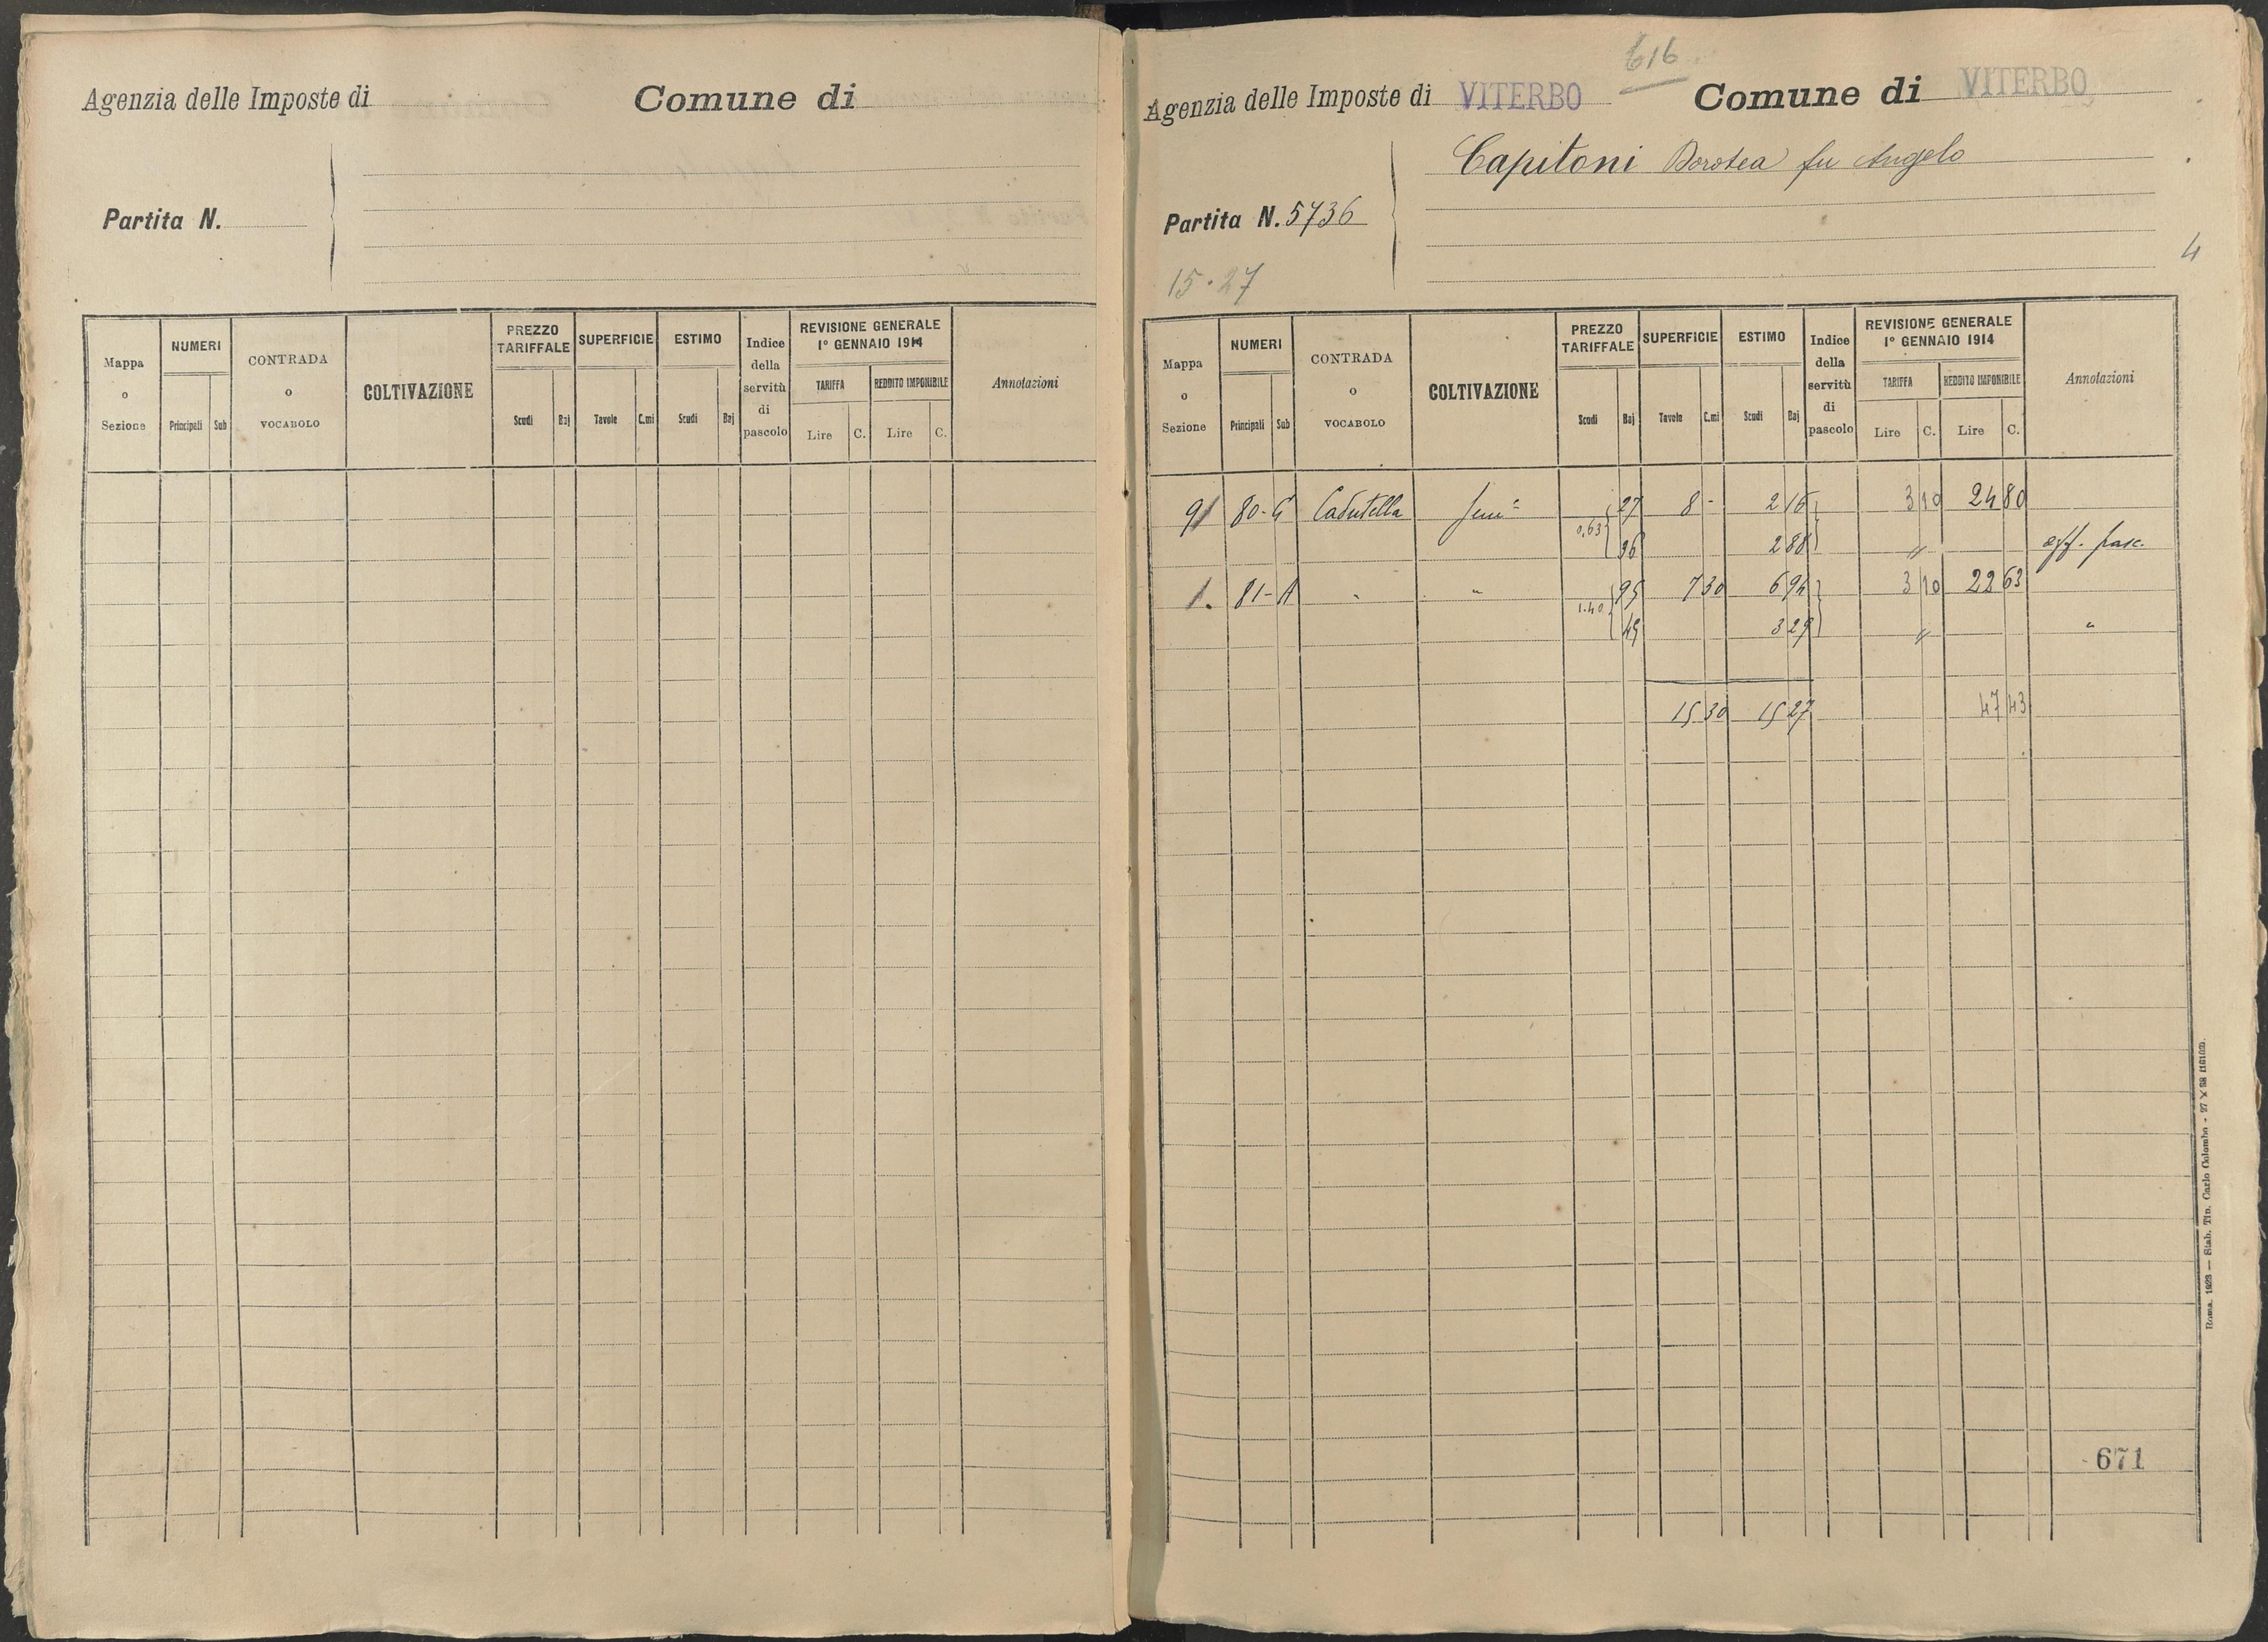 Agenzia delle Imposte di
Comune di
Partita N.
Mappa o Sezione
NUMERI
Principali
Sub
CONTRADA o VOCABOLO
COLTIVAZIONE
PREZZO TARIFFALE
Scudi
Baj
SUPERFICIE
Tavole
C.mi
ESTIMO
Scudi
Baj
Indice della servitù di pascolo
REVISIONE GENERALE
1° GENNAIO 1914
TARIFFA
REDDITO IMPONIBILE
Lire
C.
Lire
C.
Annotazioni
616
Agenzia delle Imposte di VITERBO
Comune di VITERBO
Capitoni Dorotea fu Angelo
Partita N. 5736
4
15.27
Mappa o Sezione
NUMERI
Principali
Sub
CONTRADA o VOCABOLO
COLTIVAZIONE
PREZZO TARIFFALE
Scudi
Baj
SUPERFICIE
Tavole
C.mi
ESTIMO
Scudi
Baj
Indice della servitù di pascolo
REVISIONE GENERALE
1° GENNAIO 1914
TARIFFA
REDDITO IMPONIBILE
Lire
C.
Lire
C.
Annotazioni
80-G 27 8 - 2 16 3 10 24 80
0.63 36 2 88 " aff. pasc.
1. 81-A " " 95 7 30 6 94 3 10 22 63
1.40 45 3 29 " "
15 30 15 27 47 43
671
Roma, 1923 — Stab. Tip. Carlo Colombo -